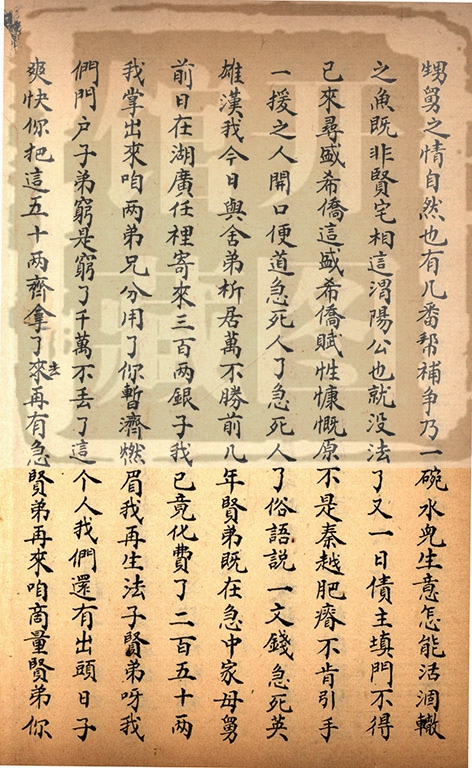 甥舅之情自然也有几番帮補争乃一碗水皃生意怎能活涸轍
之魚既非賢宅相這渭陽公也就没法了又一日債主填門不得
已來尋盛希僑這盛希僑賦性慷慨原不是秦越肥瘠不肯引手
一援之人開口便道急死人了急死人了俗語説一文錢急死英
雄漢我今日與舍弟析居萬不勝前几年賢弟既在急中家母舅
前日在湖廣任裡寄來三百两銀子我已竟化費了二百五十两
我掌出來咱两弟兄分用了你暫濟燃眉我再生法子賢弟呀我
們門户子弟窮是窮了千萬不丢了這个人我們還有出頭日子
爽快你把這五十两齊拿了來去再有急賢弟再來咱商量賢弟你
开图
馆藏